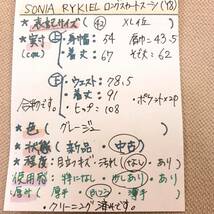 SONIA RYKIEL ロングスカートスーツ(Y8)
★表記サイズ(42 XL位)
★実寸 上:身幅:54 肩巾:43.5
(cm) 着丈:67 そで丈:62
下:ウエスト:78.5
合わせ 着丈:91 ・ポケット×2P
ヒップ:108
★色(グレージュ)
★状態(新品・中古)
★程度:目立つキズ・汚れ(なし・あり)
使用感:特になし・少しあり・あり)
厚付(厚手・ふつう・薄手)
・クリーニング済みです。